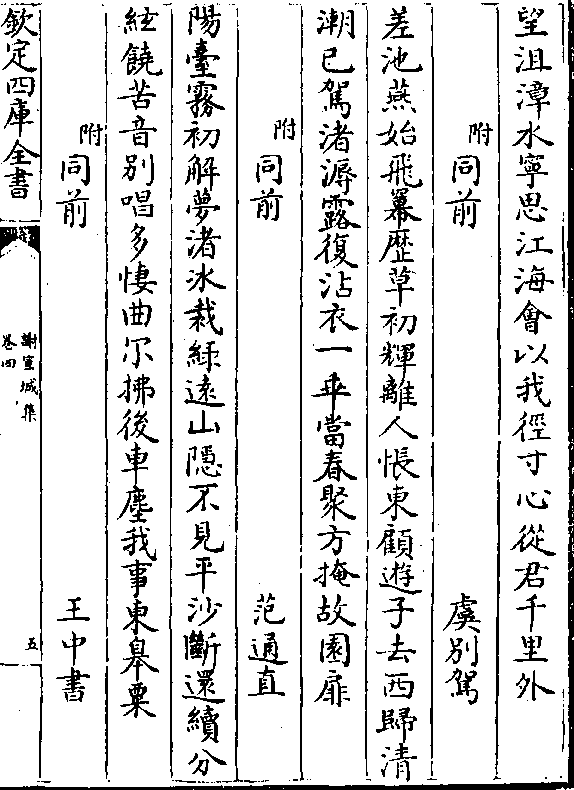 望沮漳水寧思江海會以我徑寸心從君千里外
附同前 虞別駕
差池燕始飛羃歴草初輝離人悵東顧遊子去西歸清
潮已駕渚溽露復沾衣一乖當春聚方掩故園扉
附同前 范通直
陽臺霧初解夢渚冰裁緑遠山隠不見平沙斷還續分
絃饒苦音別唱多悽曲尔拂後車塵我事東皐粟
附同前 王中書
欽定四庫全書
謝宣城集
卷四
五